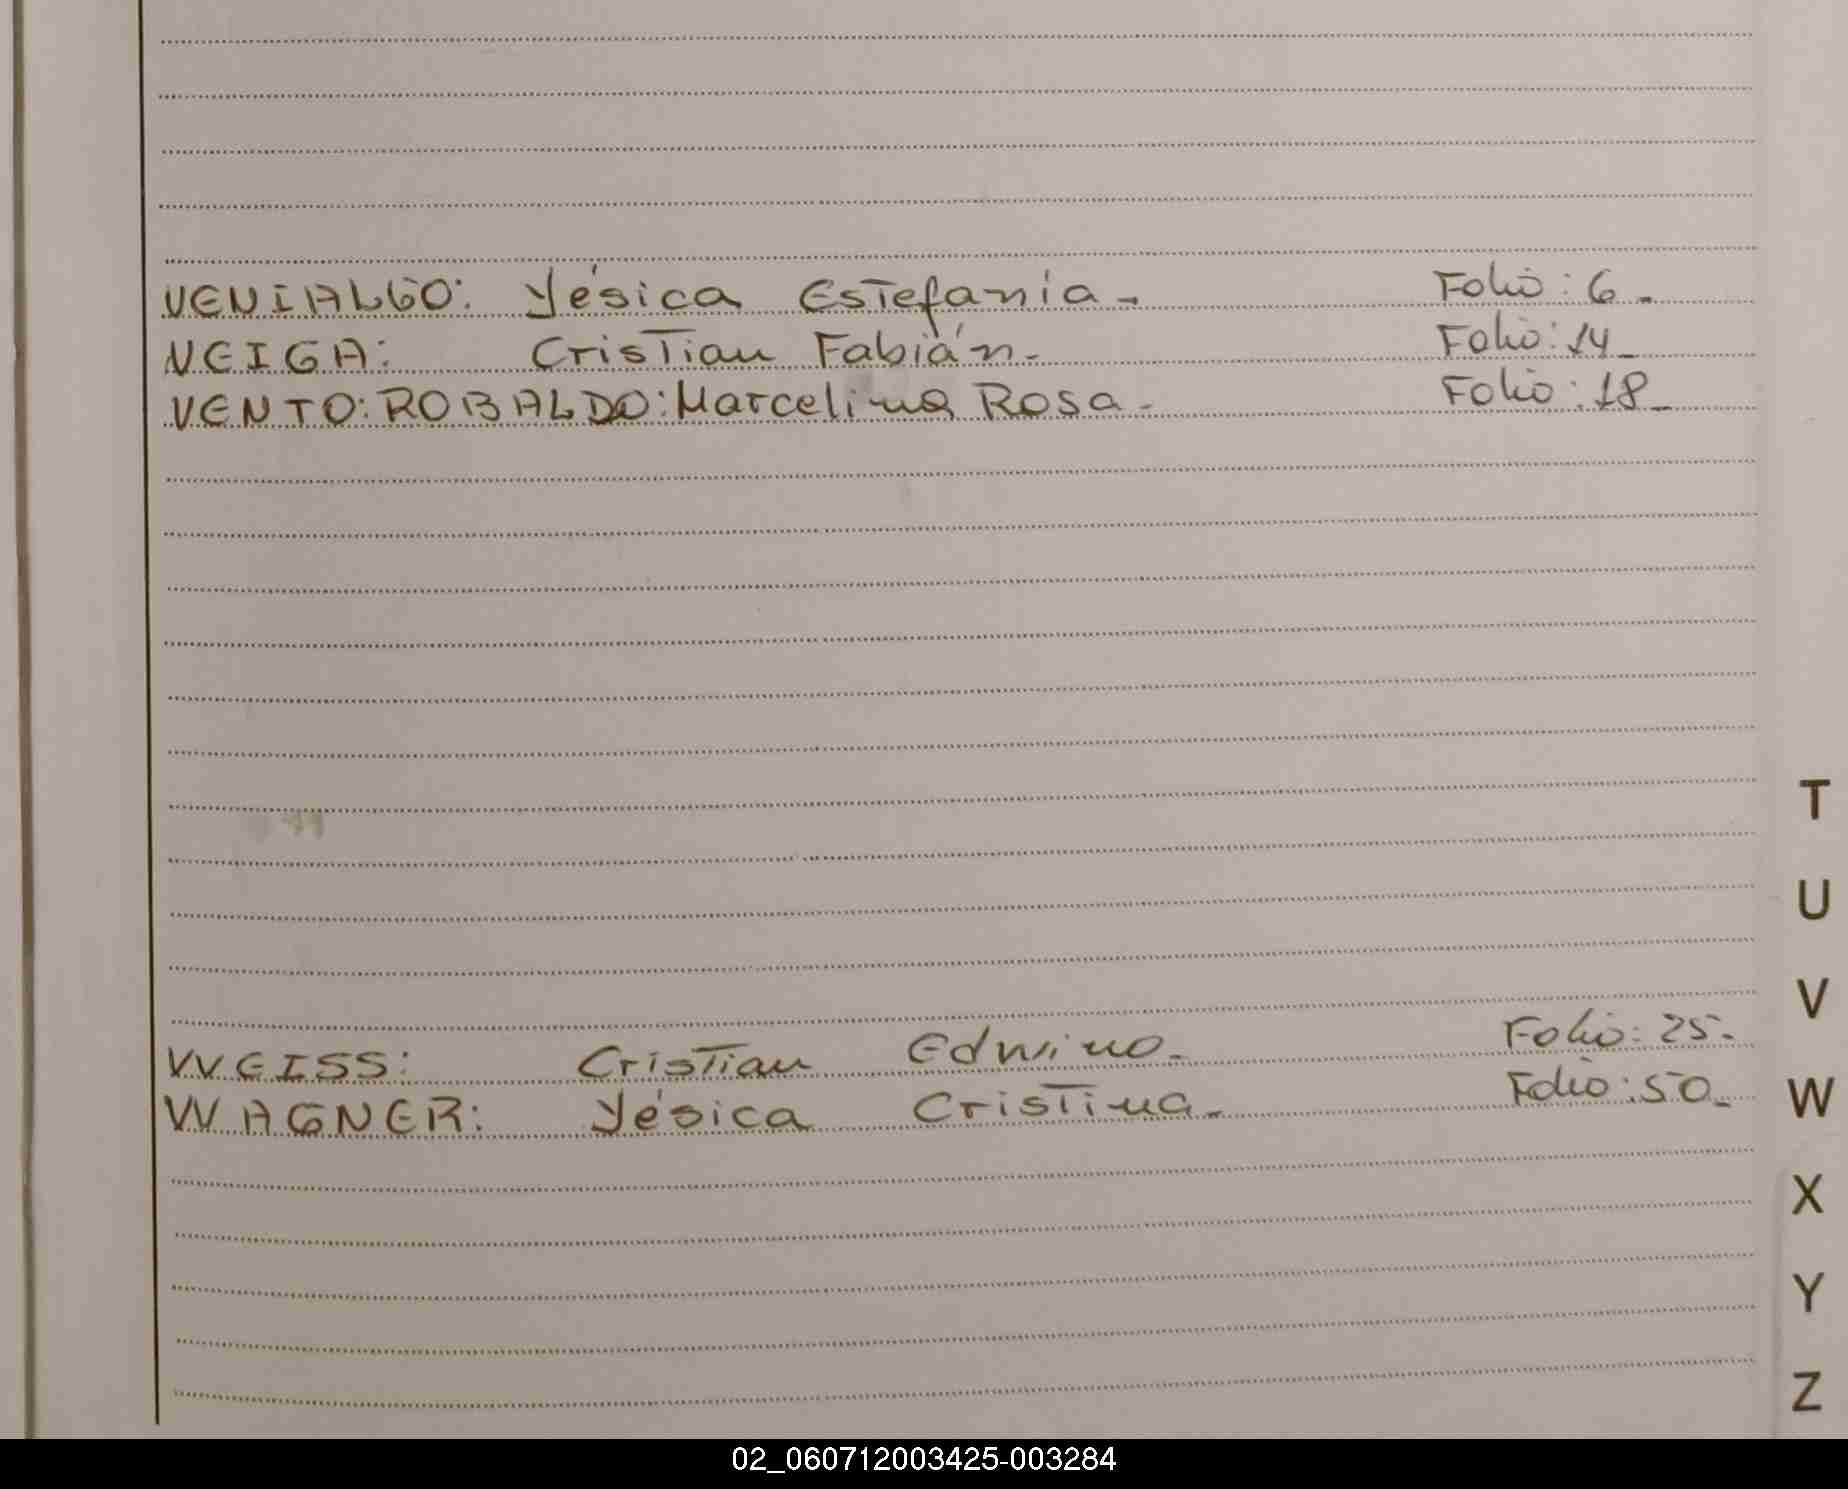 VENIALGO: Yésica Estefanía- Folio: 6-
VEIGA: Cristian Fabián- Folio: 14-
VENTO: ROBALDO: Marcelina Rosa- Folio: 18-
T
U
V
WEISS: Cristian Edwino- Folio: 25-
WAGNER: Yésica Cristina- Folio: 50-
W
X
Y
Z
02_060712003425-003284